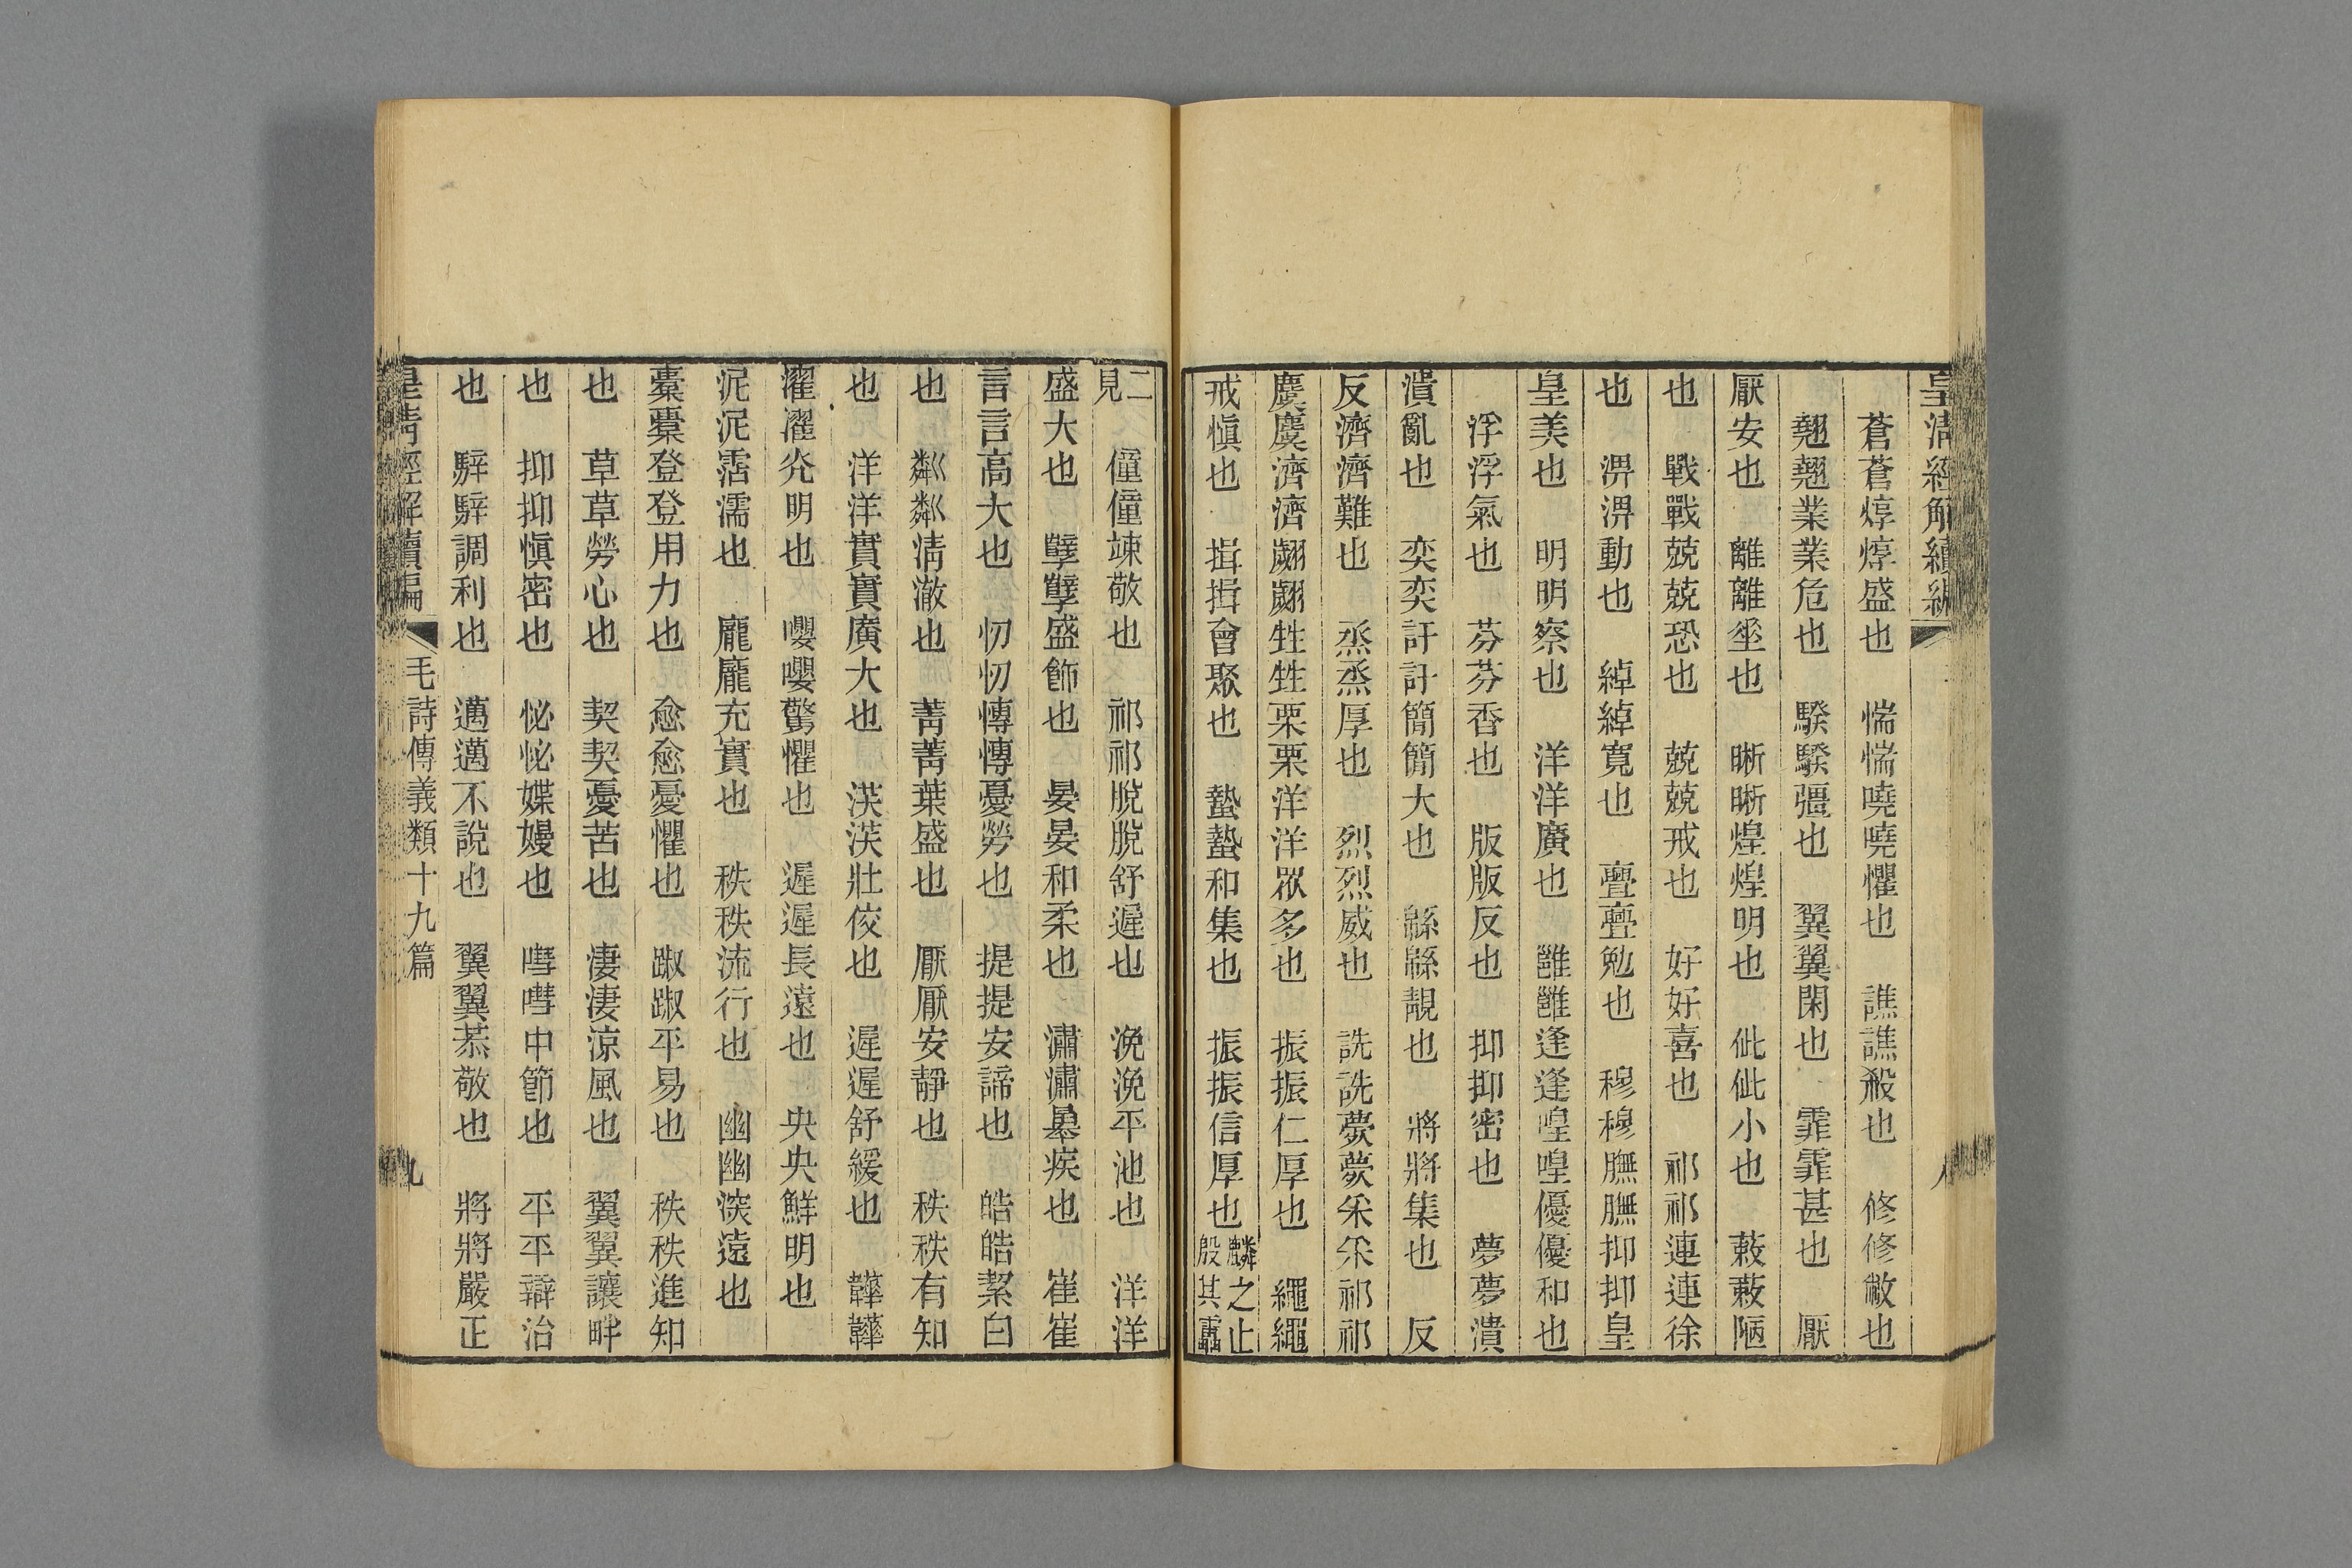 皇清經解續編
蒼蒼焞焞盛也　惴惴嘵嘵懼也　譙譙殺也　修修敝也
翹翹業業危也　騤騤彊也　翼翼閑也　霏霏甚也　厭
厭安也　離離坙也　晰晰煌煌明也　佌佌小也　蔌蔌陋
也　戰戰兢兢恐也　兢兢戒也　好好喜也　祁祁連連徐
也　淠淠動也　綽綽寬也　亹亹勉也　穆穆膴膴抑抑皇
皇美也　明明察也　洋洋廣也　雝雝逢逢喤喤優優和也
浮浮氣也　芬芬香也　版版反也　抑抑密也　夢夢潰
潰亂也　奕奕訏訏簡簡大也　緜緜靚也　將將集也　反
反濟濟難也　烝烝厚也　烈烈威也　詵詵薨薨采采祁祁
麌麌濟濟翽翽甡甡栗栗洋洋眾多也　振振仁厚也　繩繩
戒慎也　揖揖會聚也　蟄蟄和集也　振振信厚也麟之止殷其靁
二見　僮僮竦敬也　祁祁脫脫舒遲也　浼浼平池也　洋洋
盛大也　孽孽盛飾也　晏晏和柔也　瀟瀟暴疾也　崔崔
言言高大也　忉忉慱慱憂勞也　提提安諦也　皓皓絜白
也　粼粼清澈也　菁菁葉盛也　厭厭安靜也　秩秩有知
也　洋洋實實廣大也　渶渶壯佼也　遲遲舒緩也　韡韡
濯濯光明也　嚶嚶驚懼也　遲遲長遠也　央央鮮明也
泥泥霑濡也　龐龐充實也　秩秩流行也　幽幽深遠也
橐橐登登用力也　愈愈憂懼也　踧踧平易也　秩秩進知
也　草草勞心也　契契憂苦也　淒淒涼風也　翼翼讓畔
也　抑抑慎密也　怭怭媟嫚也　嘒嘒中節也　平平辯治
也　騂騂調利也　邁邁不說也　翼翼恭敬也　將將嚴正
皇清經解續編　毛詩傳義類十九篇　九